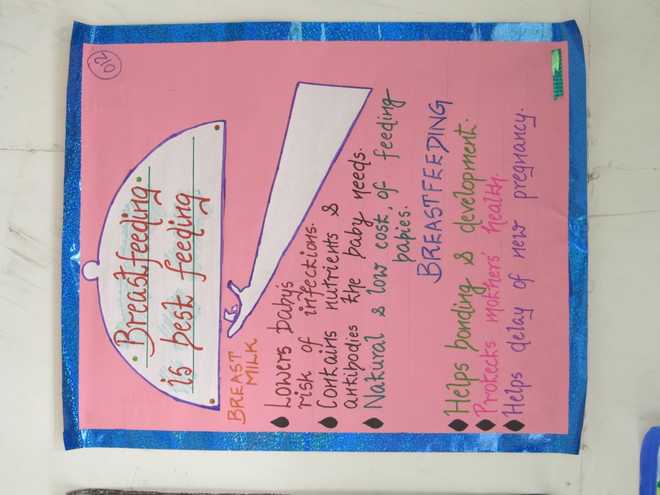 012
Breastfeeding
is best feeding
BREAST
MILK
Lowers baby's
risk of infections.
Contains nutrients &
antibodies the baby needs.
Natural & low cost of feeding
babies.
BREASTFEEDING
Helps bonding & development.
Protects mothers' health.
Helps delay of new pregnancy.